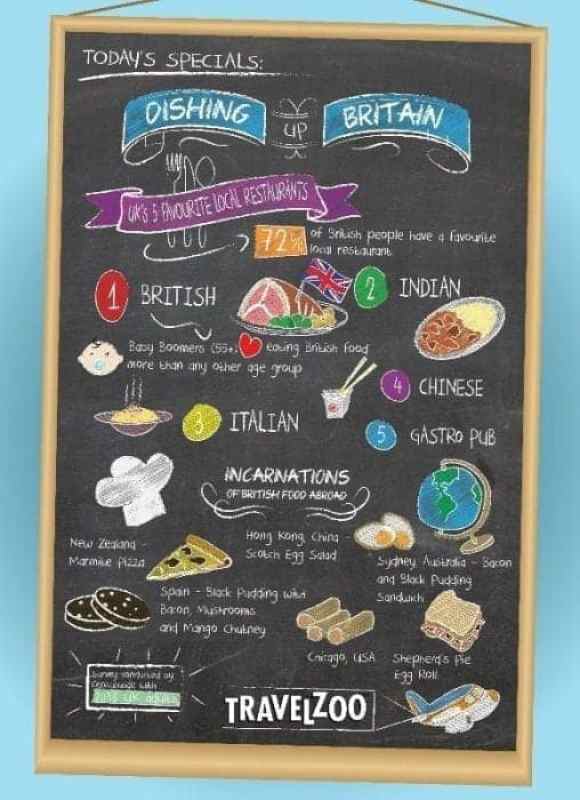 TODAY'S SPECIALS:
DISHING UP BRITAIN
UK's 5 FAVOURITE LOCAL RESTAURANTS
72% of British people have a favourite
local restaurant
1 BRITISH
2 INDIAN
Baby Boomers (55+) eating British food
more than any other age group
4 CHINESE
3 ITALIAN
5 GASTRO PUB
INCARNATIONS
OF BRITISH FOOD ABROAD
New Zealand -
Marmite pizza
Hong Kong, China -
Scotch Egg Salad
Sydney, Australia - Bacon
and Black Pudding
Sandwich
Spain - Black Pudding with
Bacon, Mushrooms
and Mango Chutney
Chicago, USA
Shepherd's Pie
Egg Roll
Survey conducted by
with
UK adults
TRAVELZOO